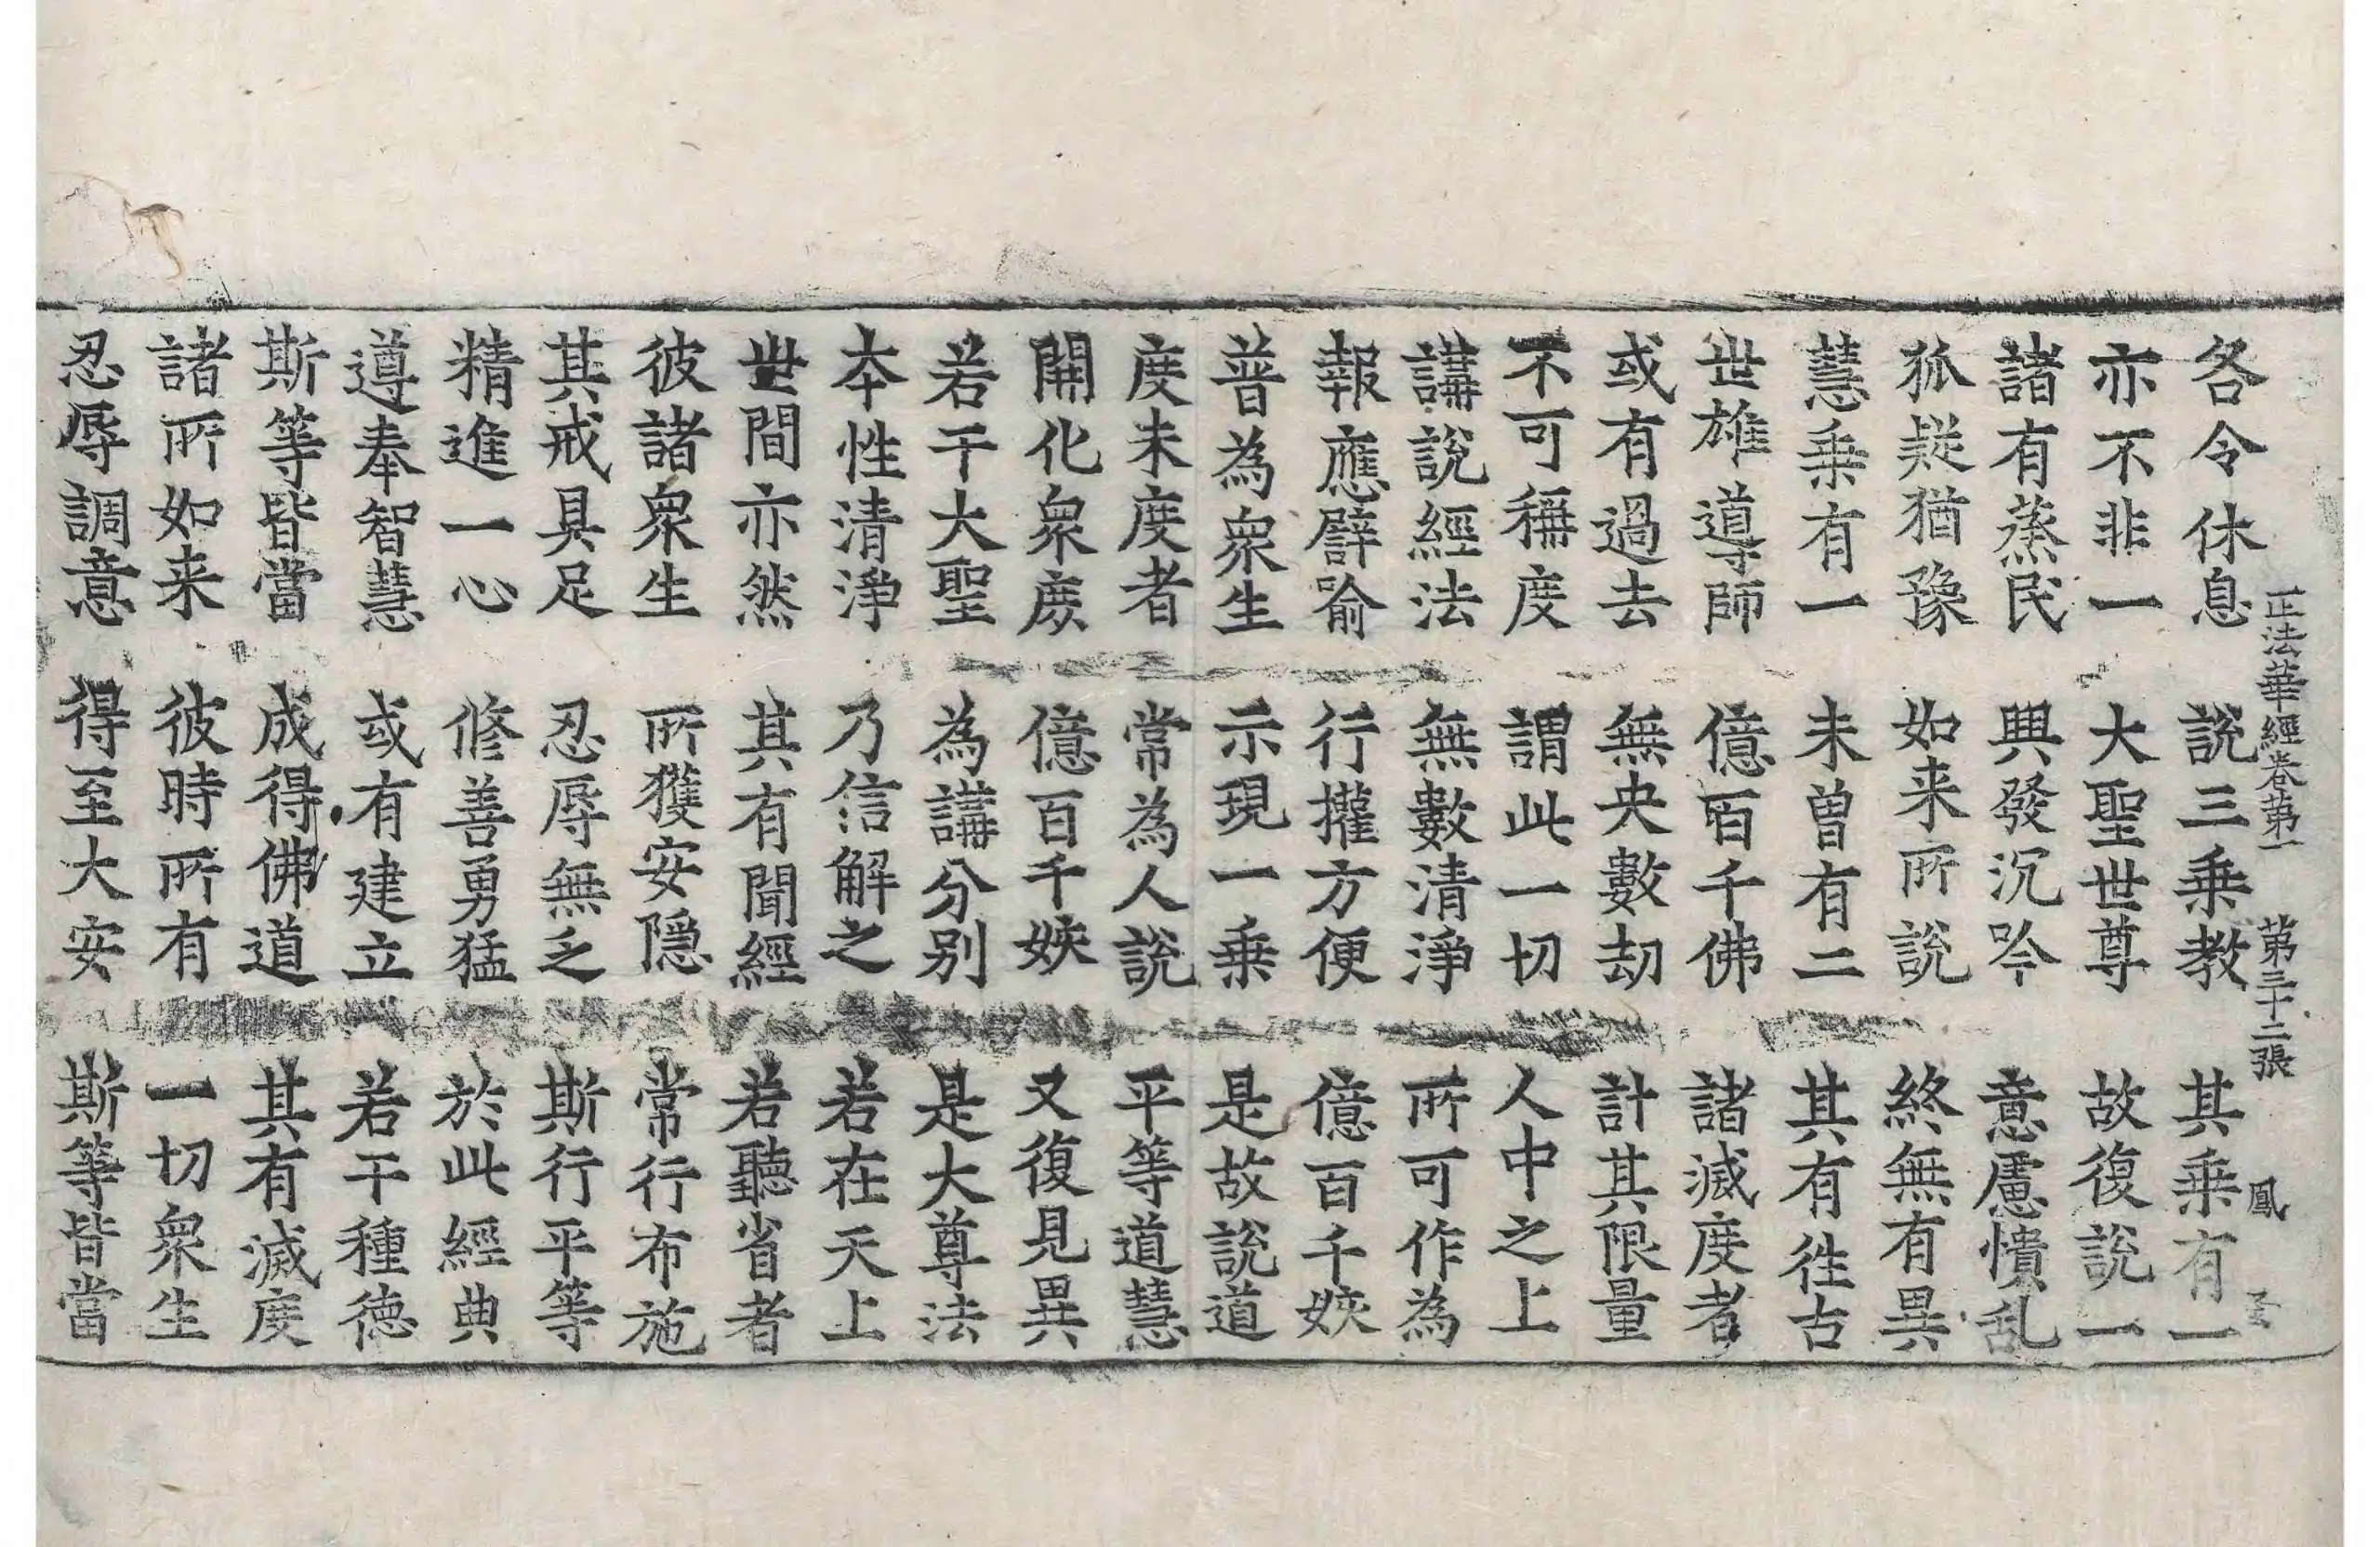 正法華經卷第一 第三十二張 鳳
各令休息 說三乗教 其乗有一
亦不非一 大聖世尊 故復說一
諸有蒸民 興發沉吟 意慮憒乱
狐疑猶豫 如来所說 終無有異
慧乗有一 未曾有二 其有徃古
世雄導師 億百千佛 諸滅度者
或有過去 無央數劫 計其限量
不可稱度 謂此一切 人中之上
講說經法 無數清淨 所可作為
報應譬喻 行權方便 億百千姟
普為衆生 示現一乗 是故說道
度未度者 常為人說 平等道慧
開化衆庶 億百千姟 又復見異
若干大聖 為講分別 是大尊法
本性清淨 乃信解之 若在天上
世間亦然 其有聞經 若聽省者
彼諸衆生 所獲安隱 常行布施
其戒具足 忍辱無乏 斯行平等
精進一心 修善勇猛 於此經典
遵奉智慧 或有建立 若干種德
斯等皆當 成得佛道 其有滅度
諸所如来 彼時所有 一切衆生
忍辱調意 得至大安 斯等皆當